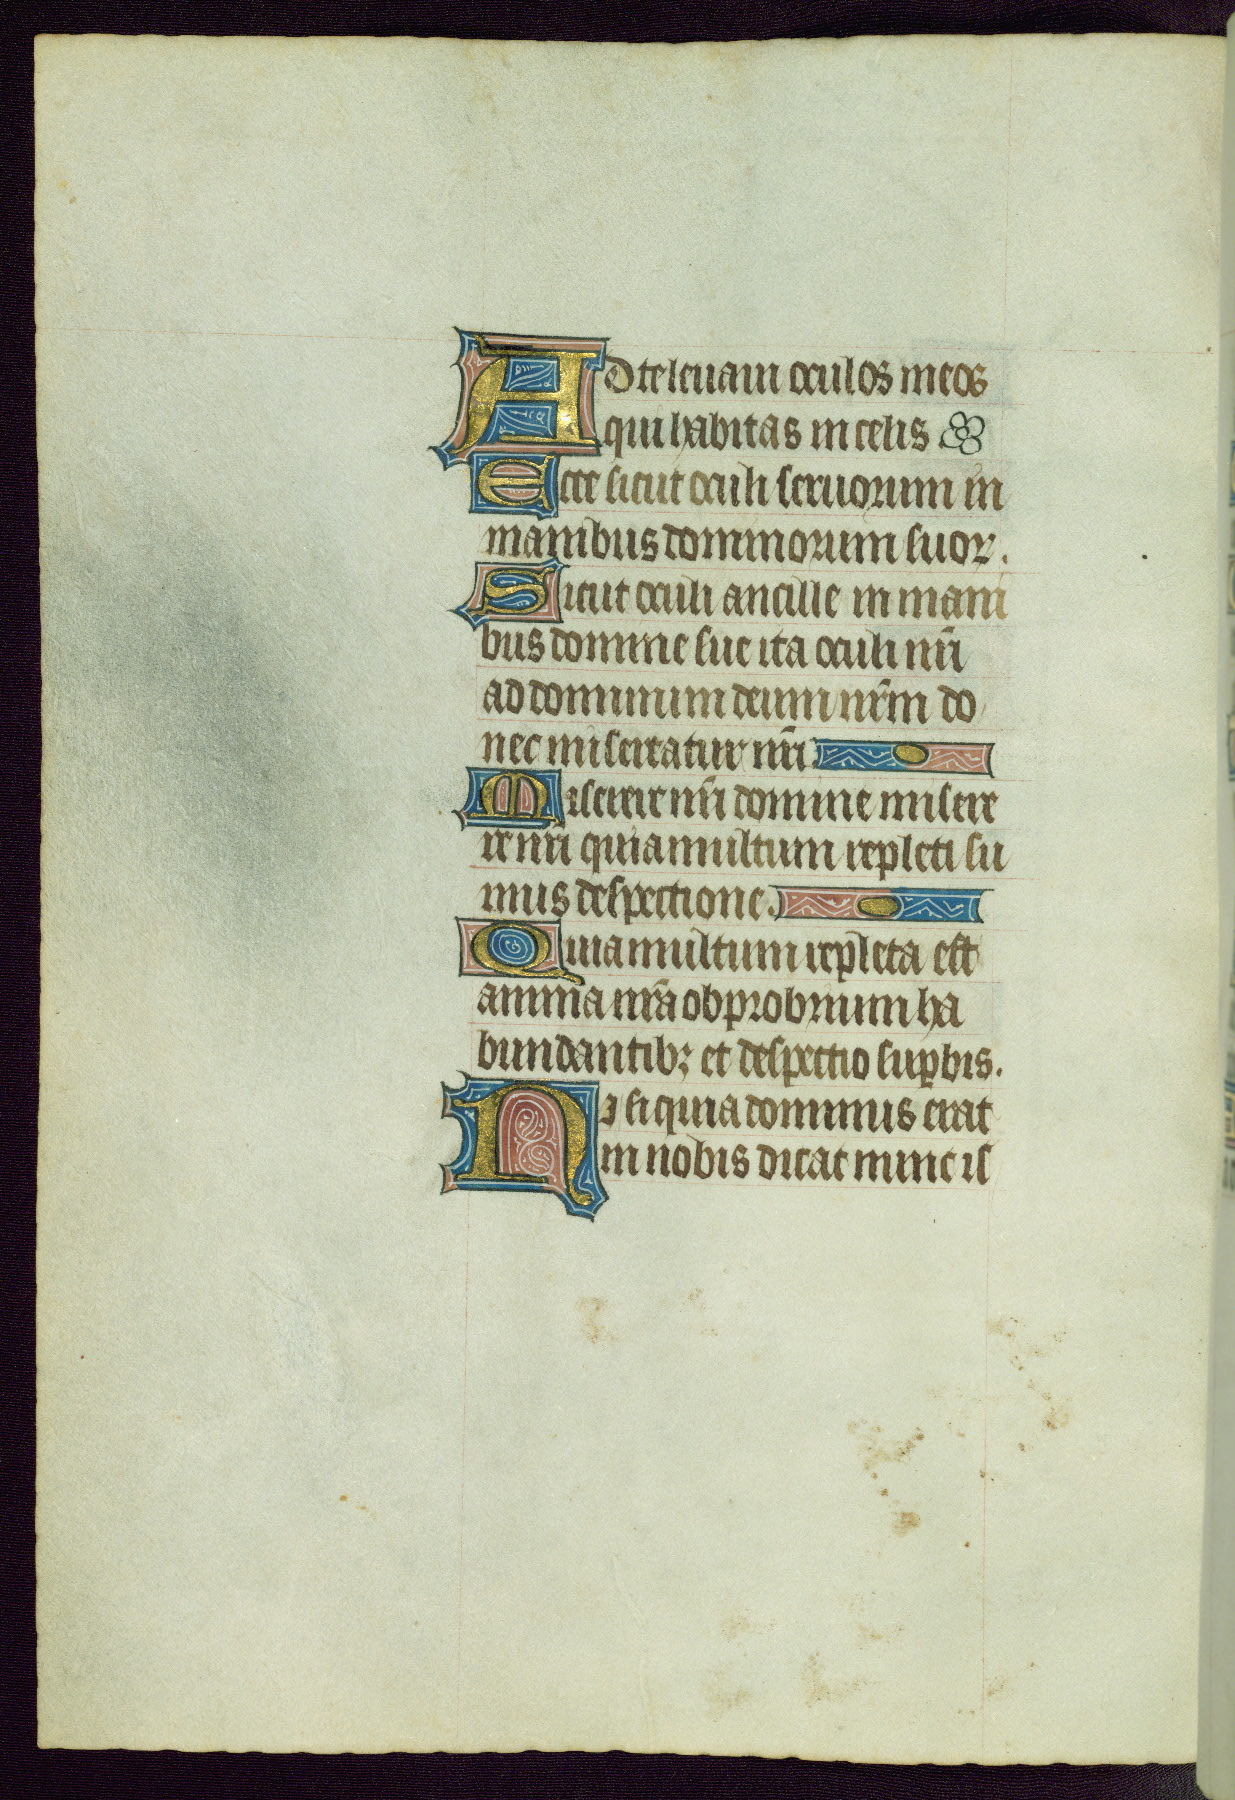 Ad te leuaui oculos meos
qui habitas in celis
Ecce sicut oculi seruorum in
manibus dominorum suoꝝ.
Sicut oculi ancille in mani
bus domine sue ita oculi nr̄i
ad dominum deum nr̄m do
nec misereatur nr̄i.
Miserere nr̄i domine misere
re nr̄i quia multum repleti su
mus despectione.
Quia multum repleta est
anima nr̄a obprobrium ha
bundantibꝫ et despectio suꝑbis.
Nisi quia dominus erat
in nobis dicat nunc is